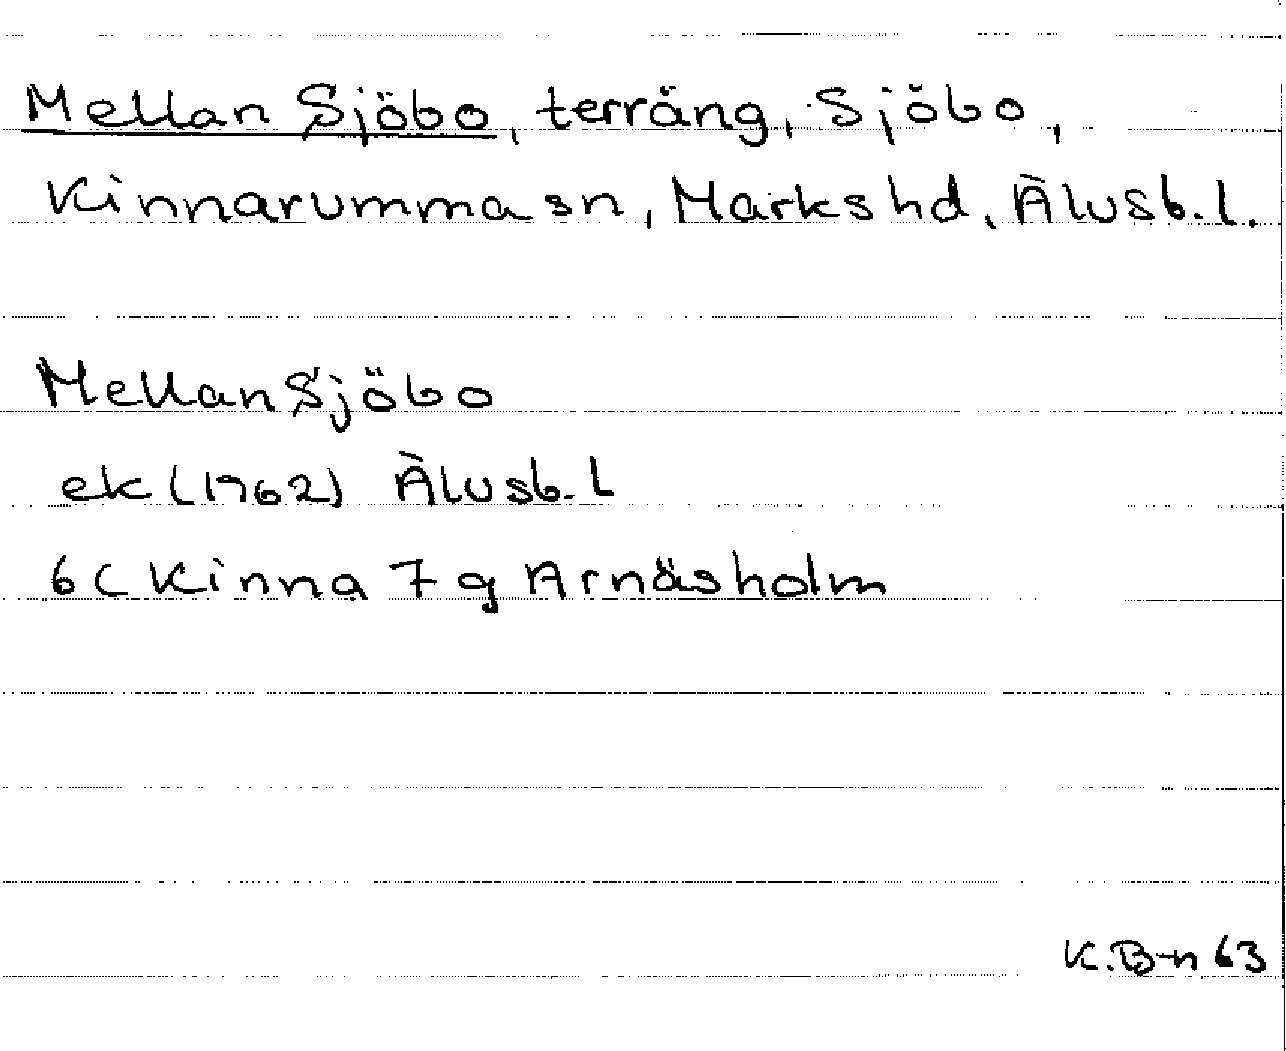 Mellan Sjöbo, terräng, Sjöbo,
Kinnarumma sn, Marks hd, Älvsb. l.
Mellan Sjöbo
ek (1762) Älvsb. l
6C Kinna 7g Arnäsholm
K. B-n 63